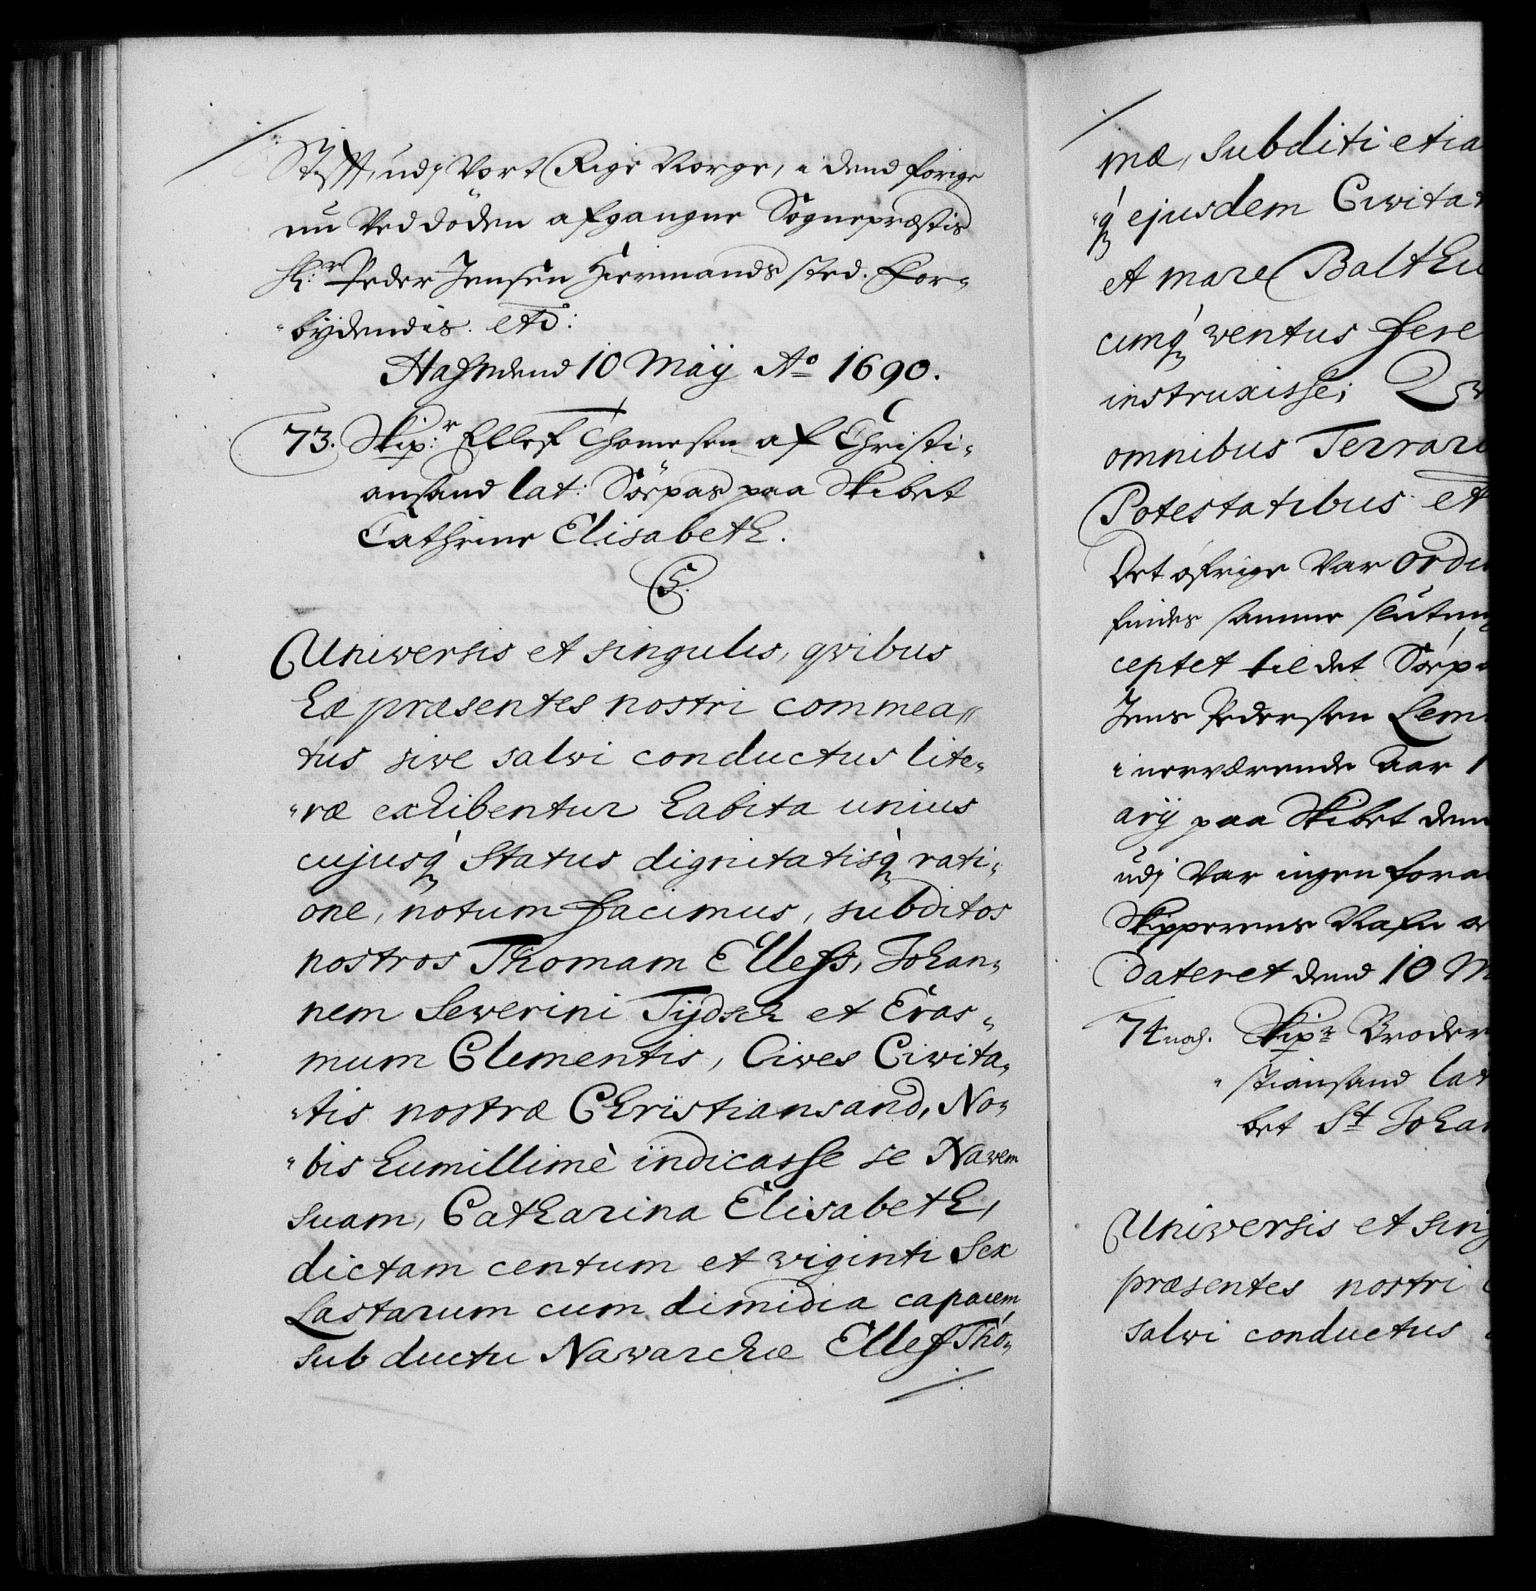 Stift, udj Vort Rige Norge, i dend forige
nu Ved döden afgangne Sognepræstis
Hr: Peder Jensen Hiermands sted. For-
bydendis. etc:
Hafn dend 10 Maÿ Ao 1690.
73. Skip:r Ellef Thomesen af Christi-
ansand lat: Söepas paa Skibet
Cathrine Elisabeth.
C5.
Universis et singulis, qvibus
hæ præsentes nostri commea-
tus sive salvi conductus lite-
ræ exhibentur habita unius
cujusq́ Status dignitatisq́ rati-
one, notum facimus, subditos
nostros Thomam Ellefs, Johan-
nem Severini Tÿdsch et Eras-
mum Clementis, Cives Civita-
tis nostræ Christiansand, No-
bis humillimè indicasse se Navem
suam, Catharina Elisabeth,
dictam centum et viginti Sex
Lastarum cum dimidia capacem
sub ductu Navarchæ Ellef Tho-
mæ, subditi etia
q́ ejusdem Civitat
et mare Balthi
cumq́ ventus fere
instruxisse;
omnibus Terrar
Potestatibus et
Det öfrige Var ord
findes samme slutn
ceptet til det Söep
Jens Pedersen Lem
i nerværende Aar 1
arij paa Skibet den
udj Var ingen fora
Skipperens Nafn o
dateret dend 10 M
74 noch. Skipr Broder
stiansand lat
bet St Johan
Universis et sing
præsentes nostri
salvi conductus